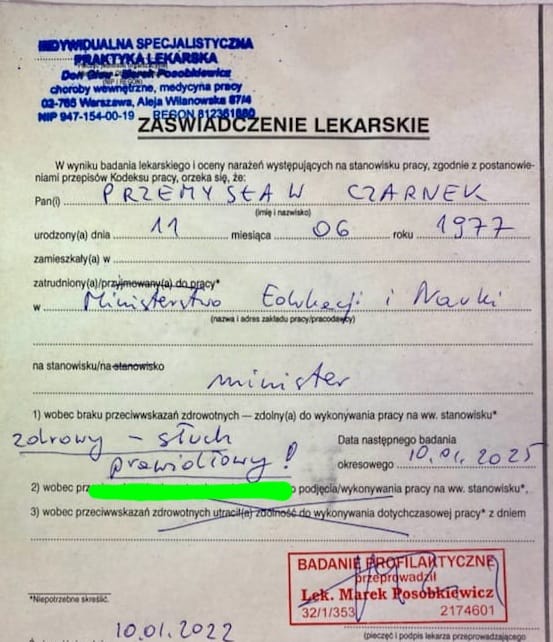 INDYWIDUALNA SPECJALISTYCZNA
PRAKTYKA LEKARSKA
Marek Posobkiewicz
choroby wewnętrzne, medycyna pracy
02-765 Warszawa, Aleja Wilanowska 67/4
NIP 947-154-00-19 REGON
ZAŚWIADCZENIE LEKARSKIE
W wyniku badania lekarskiego i oceny narażeń występujących na stanowisku pracy, zgodnie z postanowie-
niami przepisów Kodeksu pracy, orzeka się, że:
Pan(i) PRZEMYSŁAW CZARNEK
(imię i nazwisko)
urodzony(a) dnia 11 miesiąca 06 roku 1977
zamieszkały(a) w
zatrudniony(a)/przyjmowany(a) do pracy*
w Ministerstwo Edukacji i Nauki
(nazwa i adres zakładu pracy/pracodawcy)
na stanowisku/na stanowisko
minister
1) wobec braku przeciwwskazań zdrowotnych — zdolny(a) do wykonywania pracy na ww. stanowisku*
zdrowy – słuch
prawidłowy!
Data następnego badania
okresowego 10.01.2025
2) wobec podjęcia/wykonywania pracy na ww. stanowisku*,
3) wobec przeciwwskazań zdrowotnych utracił(a) zdolność do wykonywania dotychczasowej pracy* z dniem
BADANIE PROFILAKTYCZNE
przeprowadził
Lek. Marek Posobkiewicz
32/1/353 2174601
*Niepotrzebne skreślić.
10.01.2022
(pieczęć i podpis lekarza przeprowadzającego